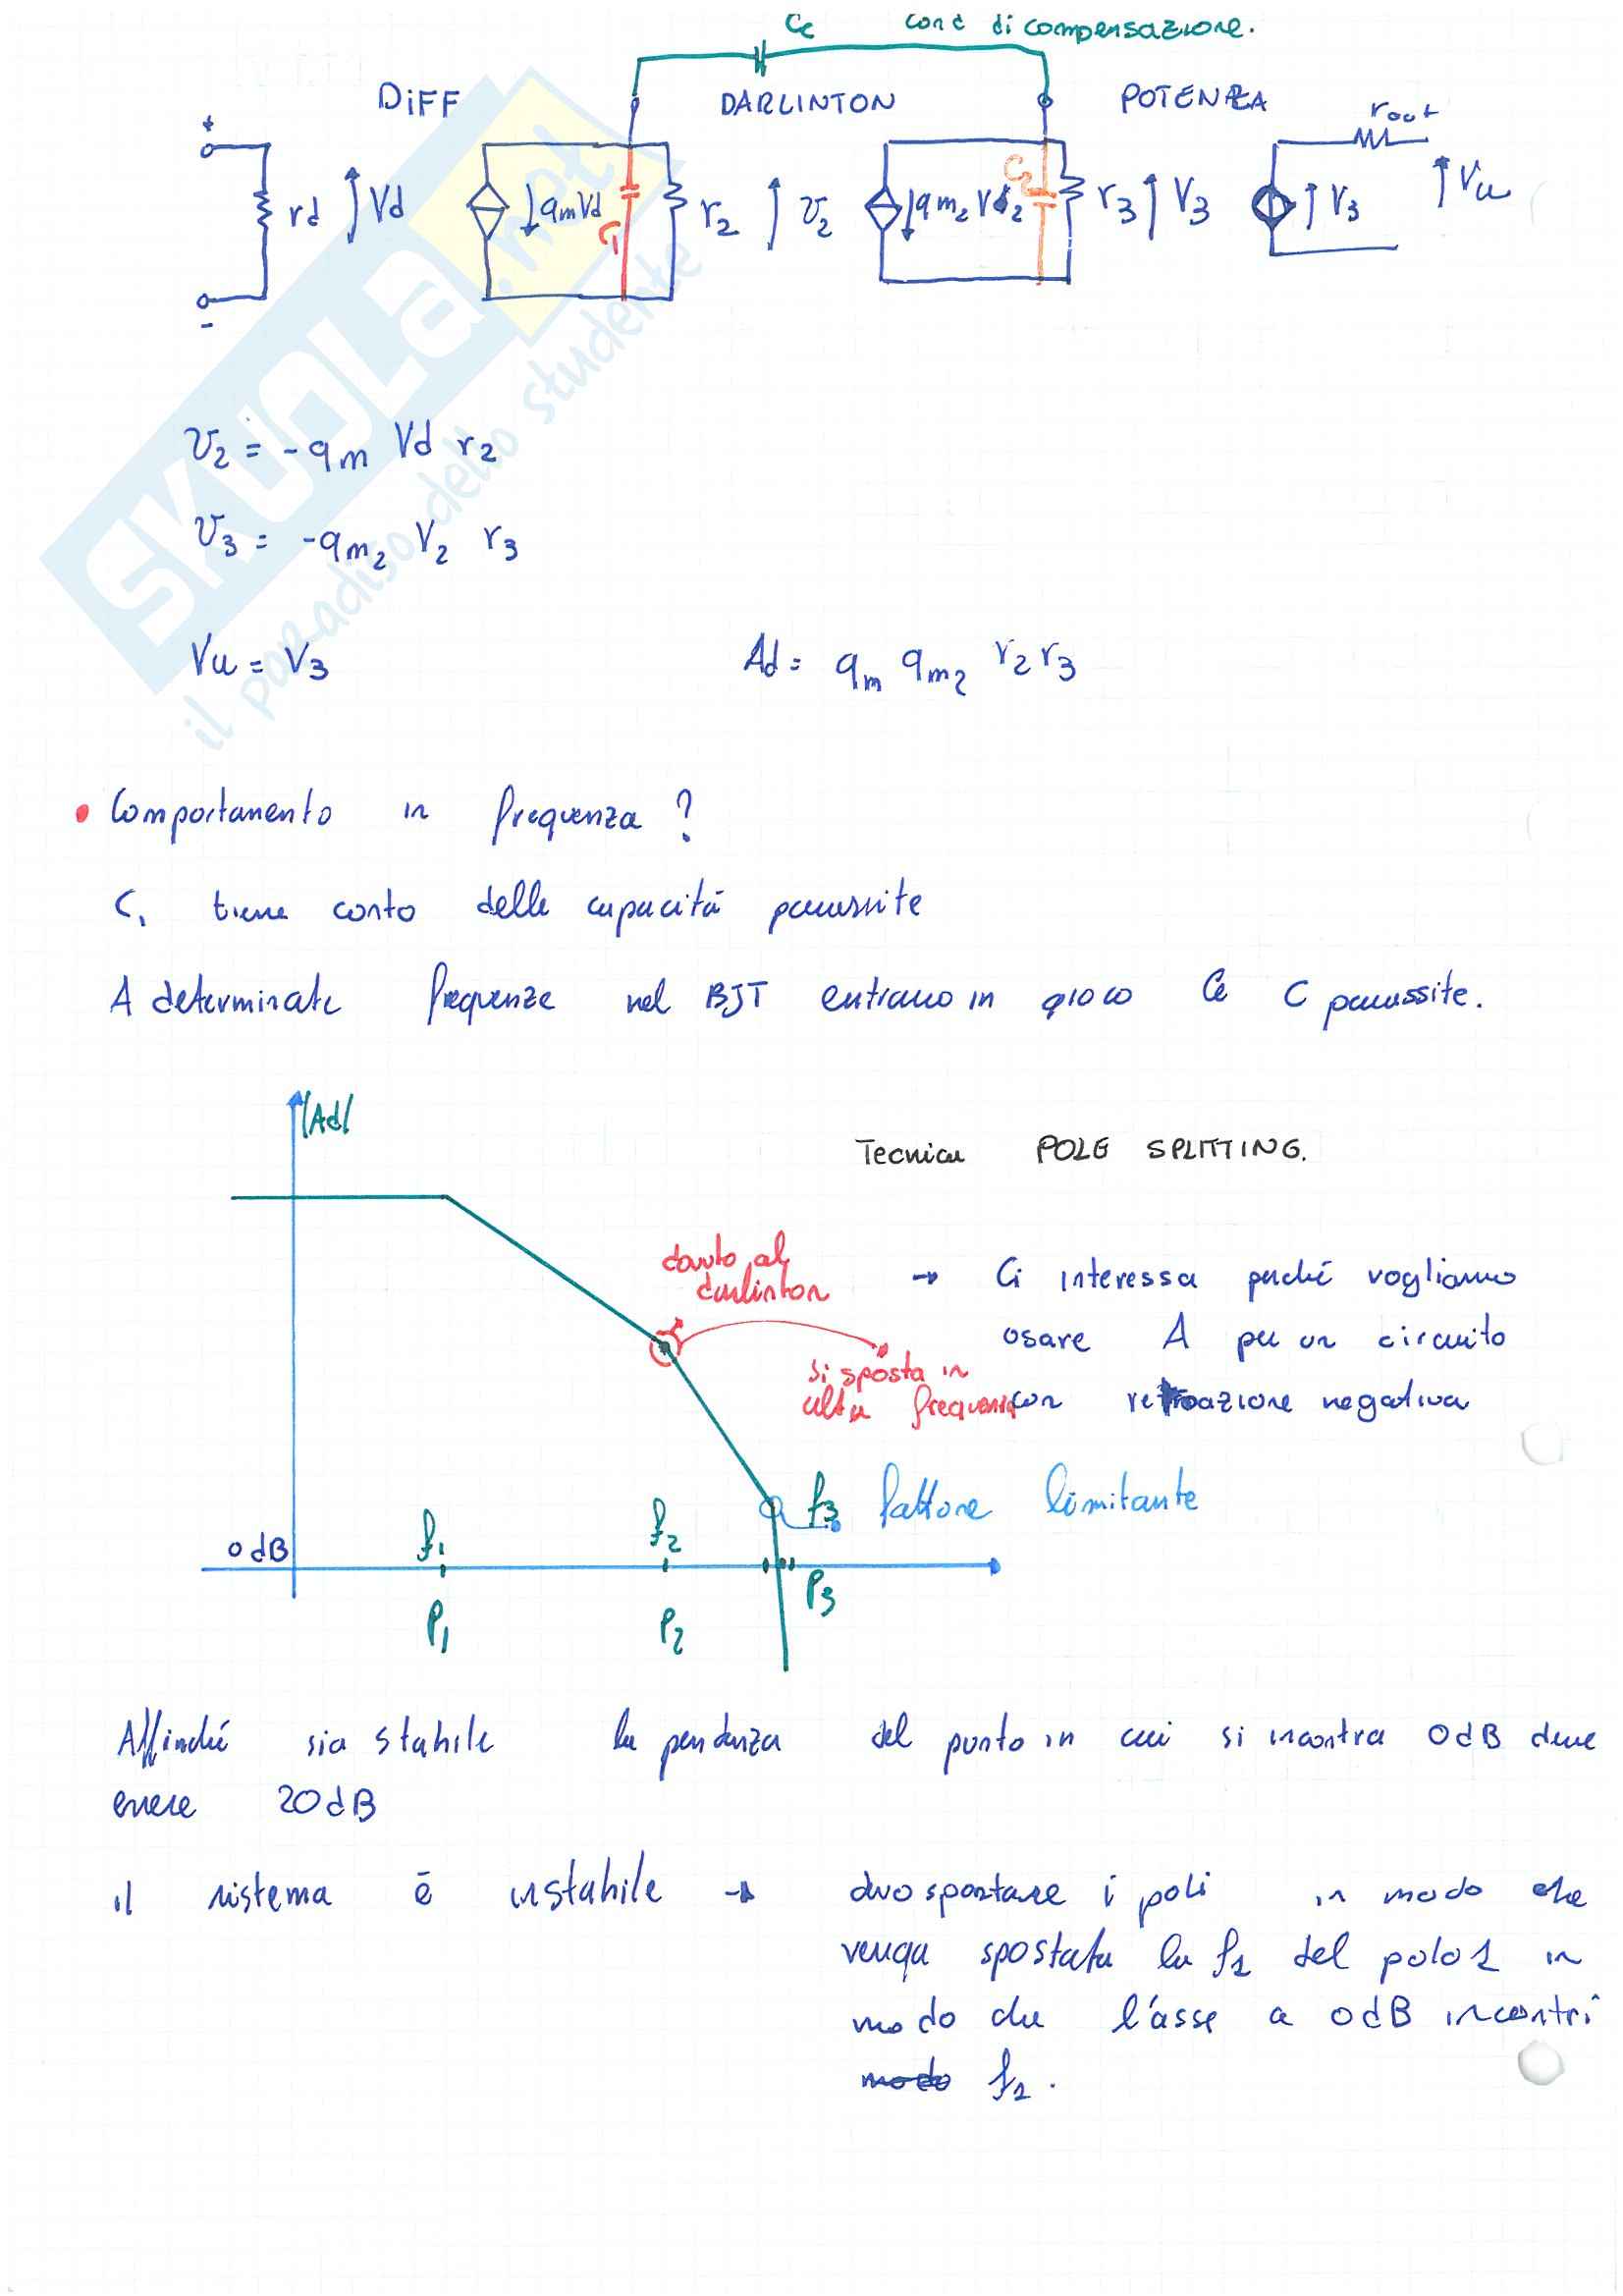 Cc cond di compensazione.
DIFF DARLINTON POTENZA
rout
+
rd Vd gmVd C1 r2 v2 gm2 V2 C2 r3 V3 V3 Vu
-
SKUOLA.net
il paradiso dello studente
v2 = - gm Vd r2
v3 = - gm2 V2 r3
Vu = V3 Ad = gm gm2 r2 r3
• Comportamento in frequenza ?
C1 tiene conto delle capacità parassite
A determinate frequenze nel BJT entrano in gioco le C parassite.
|Ad|
Tecnica POLE SPLITTING.
dovuto al
darlinton
→ Ci interessa perché vogliamo
osare A per un circuito
si sposta in
alta frequenza
con retroazione negativa
f3 fattore limitante
0 dB f1 f2
P1 P2 P3
Affinché sia stabile la pendenza del punto in cui si incontra 0 dB deve
essere 20 dB
il sistema è instabile → devo spostare i poli in modo che
venga spostata la f1 del polo 1 in
modo che l'asse a 0 dB incontri
modo f2.